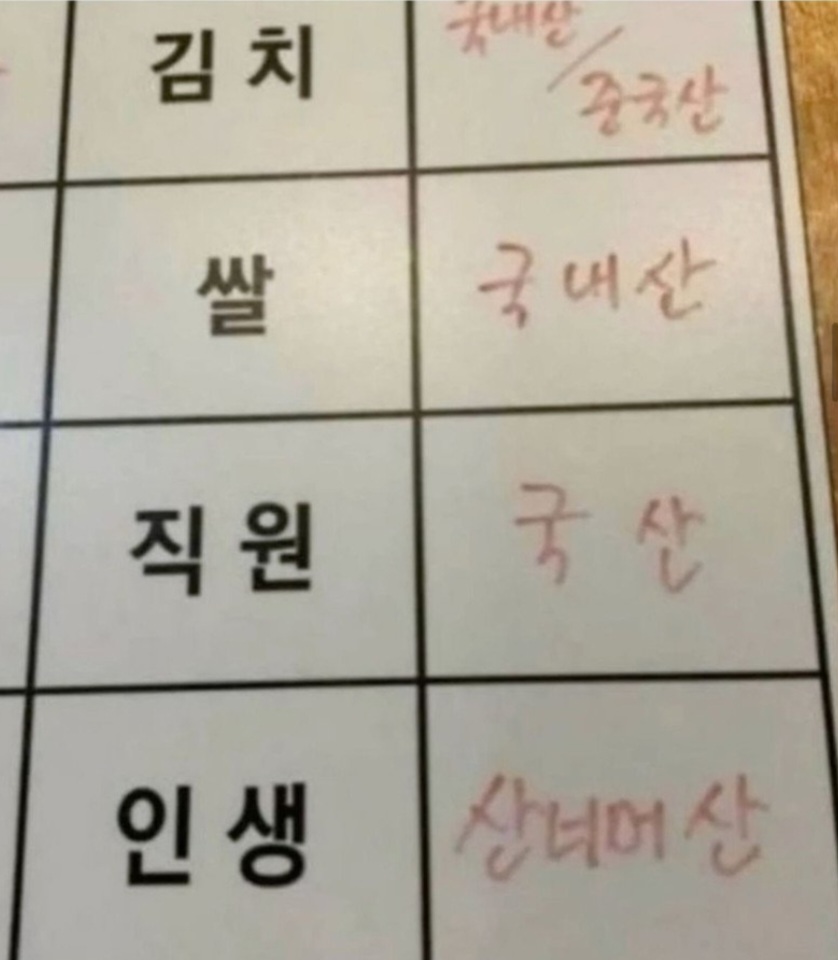 김치 국내산/중국산
쌀 국내산
직원 국산
인생 산네머산